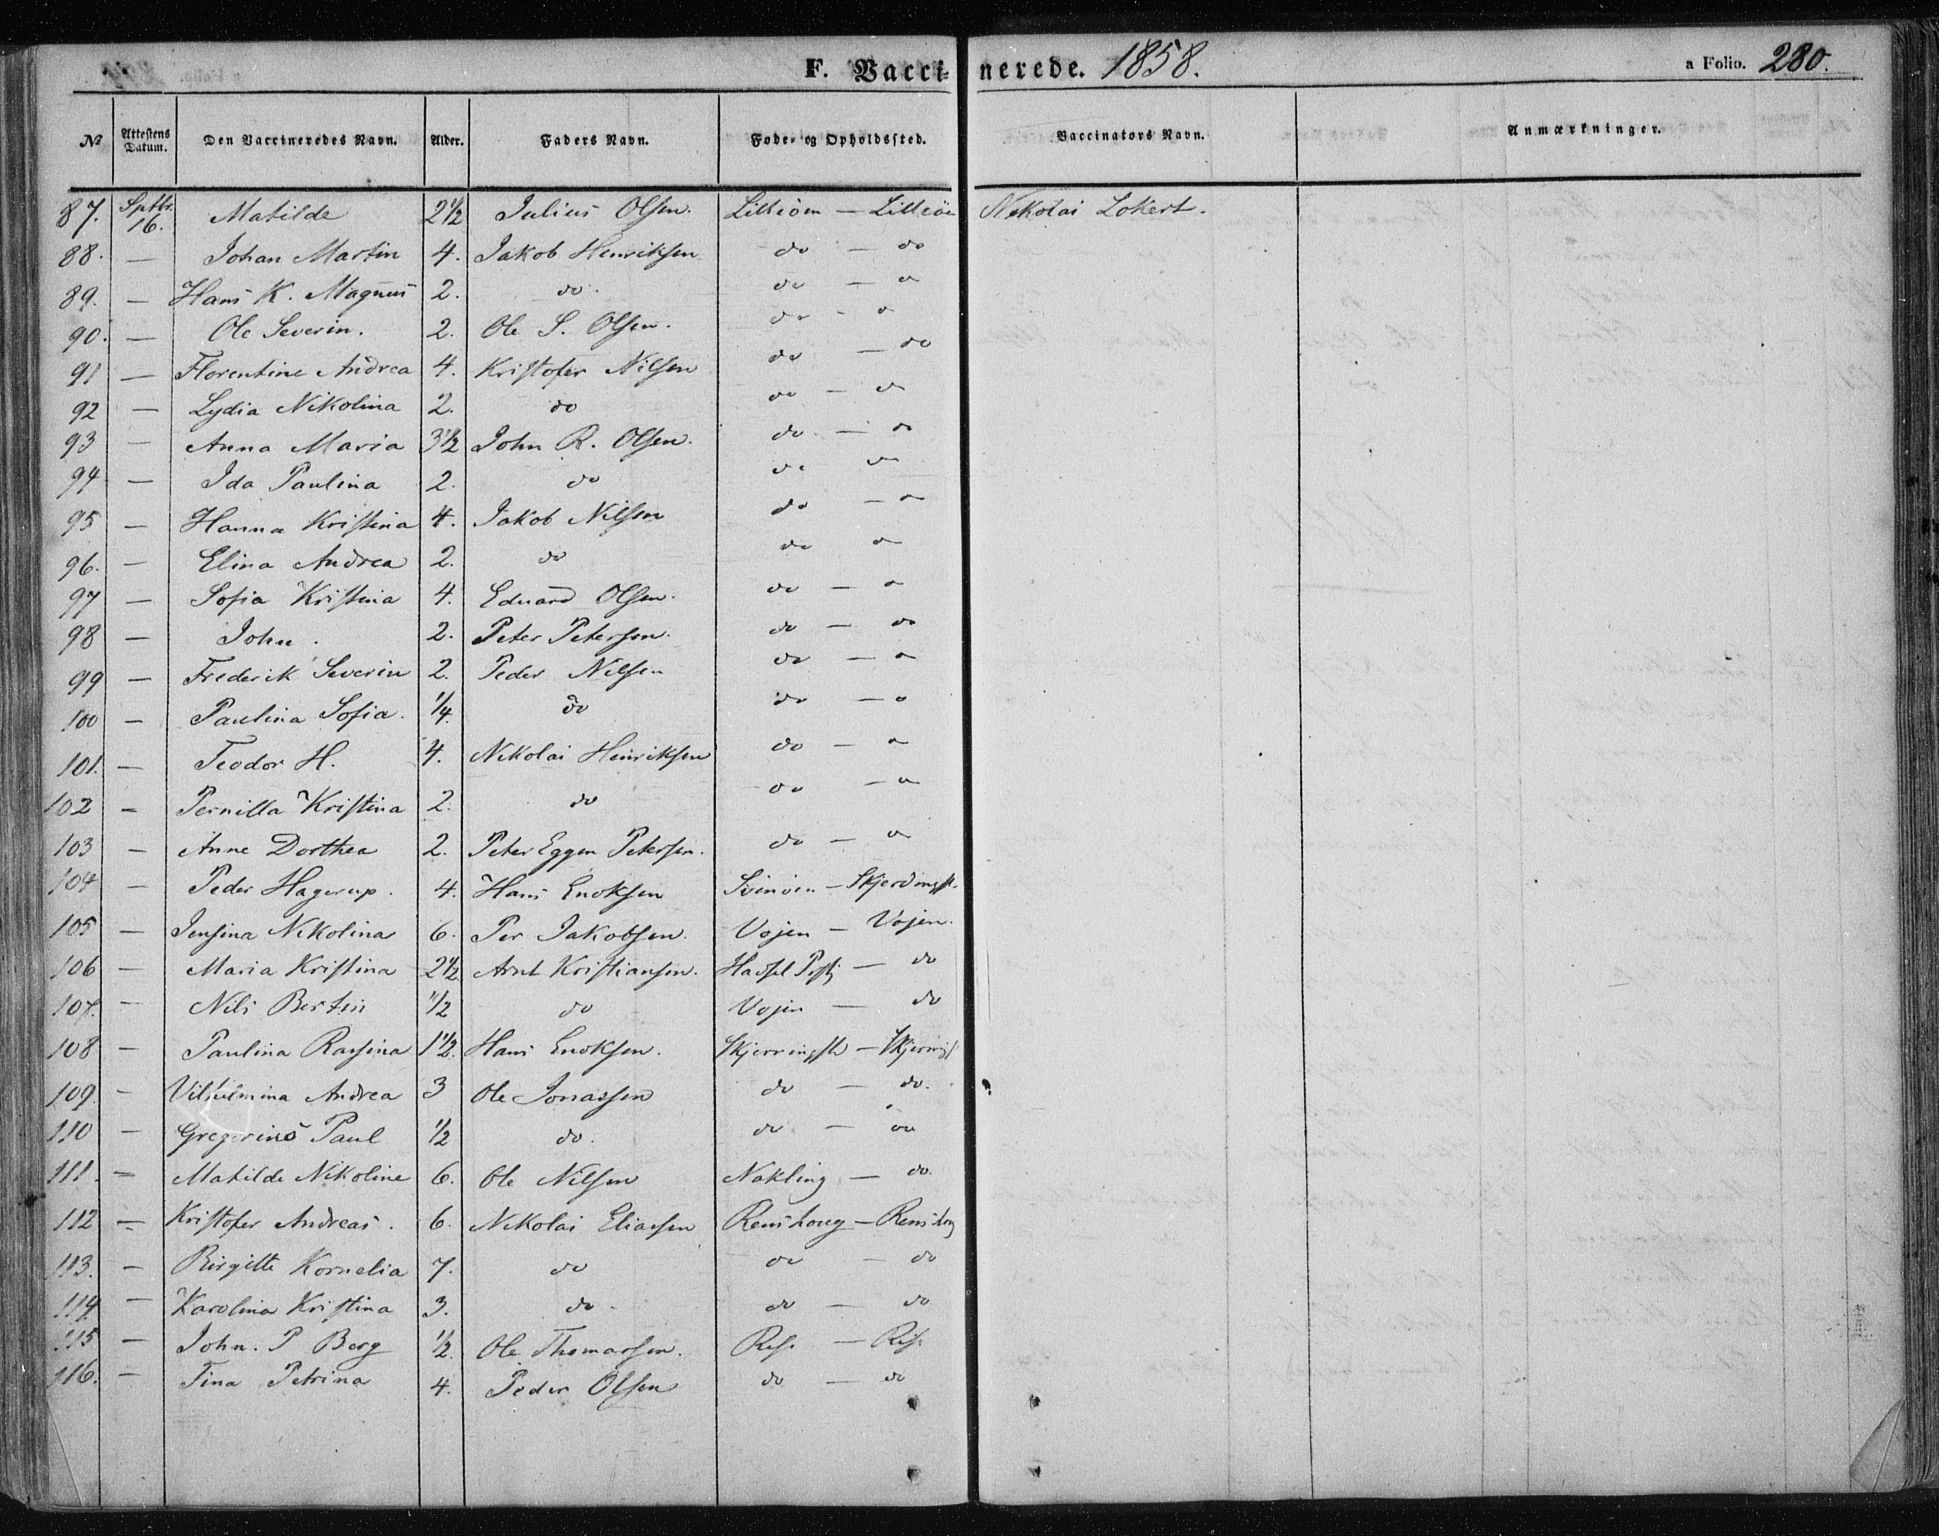 F. Vaccinerede. 1858. a Folio. 280.
№ Attestens Datum. Den Vaccineredes Navn. Alder. Faders Navn. Føde- og Opholdssted. Vaccinators Navn. Anmærkninger.
87. Sptbr. 16. Matilde 2 1/2 Julius Olsen. Lilleöen — Lilleöe Nikolai Lokert.
88. — Johan Martin 4. Jakob Henriksen do — do
89. — Hans K. Magnus 2. do. do —
90. — Ole Severin. 2. Ole S. Olsen. do -
91 — Florentine Andrea 4. Kristofer Nilsen do — do
92 — Lydia Nikolina 2. do do — do
93 — Anna Maria 3 1/2 John R. Olsen. do — do
94 — Ida Paulina 2. do do do
95 — Hanna Kristina 4. Jakob Nilsen do —
96. — Elina Andrea 2. do do —
97 — Sofia Kristina 4. Eduard Olsen. do —
98 — John. 2. Peter Petersen. do — do
99 — Frederik Severin 2. Peder Nilsen do —
100 — Paulina Sofia. 1/4. do do —
101. — Teodor H. 4. Nikolai Henriksen do —
102 — Pernilla Kristina 2. do do —
103 — Anne Dorthea 2. Peter Eggen Petersen. do —
104 — Peder Hagerup. 4. Hans Enoksen Svinöen — Skjerdingst.
105 — Jensina Nikolina 6. Per Jakobsen. Vojen — Vojen.
106 — Maria Kristina 2 1/2 Arnt Kristiansen. — do
107. — Nils Bertin 1/2 do Vojen — do
108 — Paulina Rasina 1 1/2. Hans Enoksen. —
109. — Vilhelmina Andrea 3 Ole Jonassen do — do.
110 — Gregorius Paul 1/2 do. do — do
111. — Matilde Nikoline 6. Ole Nilsen Nakling — do.
112 — Kristofer Andreas. 6. Nikolai Eliassen —
113. — Birgitte Kornelia 7. do do — do
114. — Karolina Kristina 3. do. do — do
115 — John. P Berg 1/2. Ole Thomassen. —
116. — Tina Petrina 4. Peder Olsen do — do